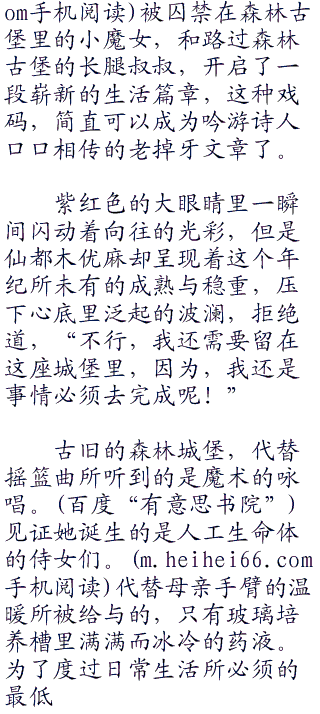 om手机阅读)被囚禁在森林古
堡里的小魔女，和路过森林
古堡的长腿叔叔，开启了一
段崭新的生活篇章，这种戏
码，简直可以成为吟游诗人
口口相传的老掉牙文章了。
紫红色的大眼睛里一瞬
间闪动着向往的光彩，但是
仙都木优麻却呈现着这个年
纪所未有的成熟与稳重，压
下心底里泛起的波澜，拒绝
道，“不行，我还需要留在
这座城堡里，因为，我还是
事情必须去完成呢！”
古旧的森林城堡，代替
摇篮曲所听到的是魔术的咏
唱。(百度“有意思书院”)
见证她诞生的是人工生命体
的侍女们。(m.heihei66.com
手机阅读)代替母亲手臂的温
暖所被给与的，只有玻璃培
养槽里满满而冰冷的药液。
为了度过日常生活所必须的
最低